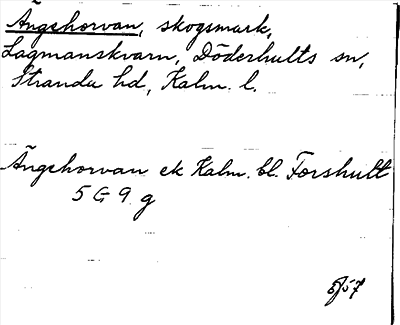 Ängehorvan, skogsmark,
Lagmanskvarn, Döderhults sn,
Stranda hd, Kalm. l.
Ängehorvan ek Kalm. bl. Forshult
5 G 9 g